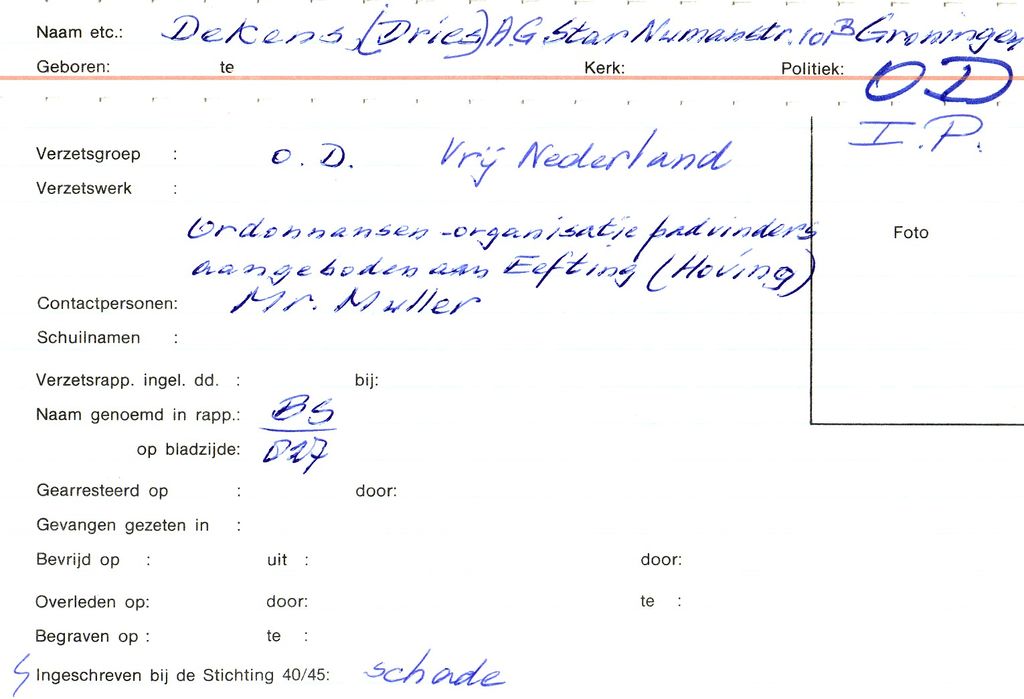 Naam etc.: Dekens (Dries) A.G. Star Numanstr. 101B Groningen
Geboren: te Kerk: Politiek: OD
I.P.
Verzetsgroep : O.D. Vrij Nederland
Verzetswerk :
Ordonnansen-organisatie padvinders
aangeboden aan Eefting (Hoving)
Foto
Contactpersonen: Mr. Muller
Schuilnamen :
Verzetsrapp. ingel. dd. : bij:
Naam genoemd in rapp.: BS
op bladzijde: 027
Gearresteerd op : door:
Gevangen gezeten in :
Bevrijd op : uit : door:
Overleden op: door: te :
Begraven op : te :
Ingeschreven bij de Stichting 40/45: schade